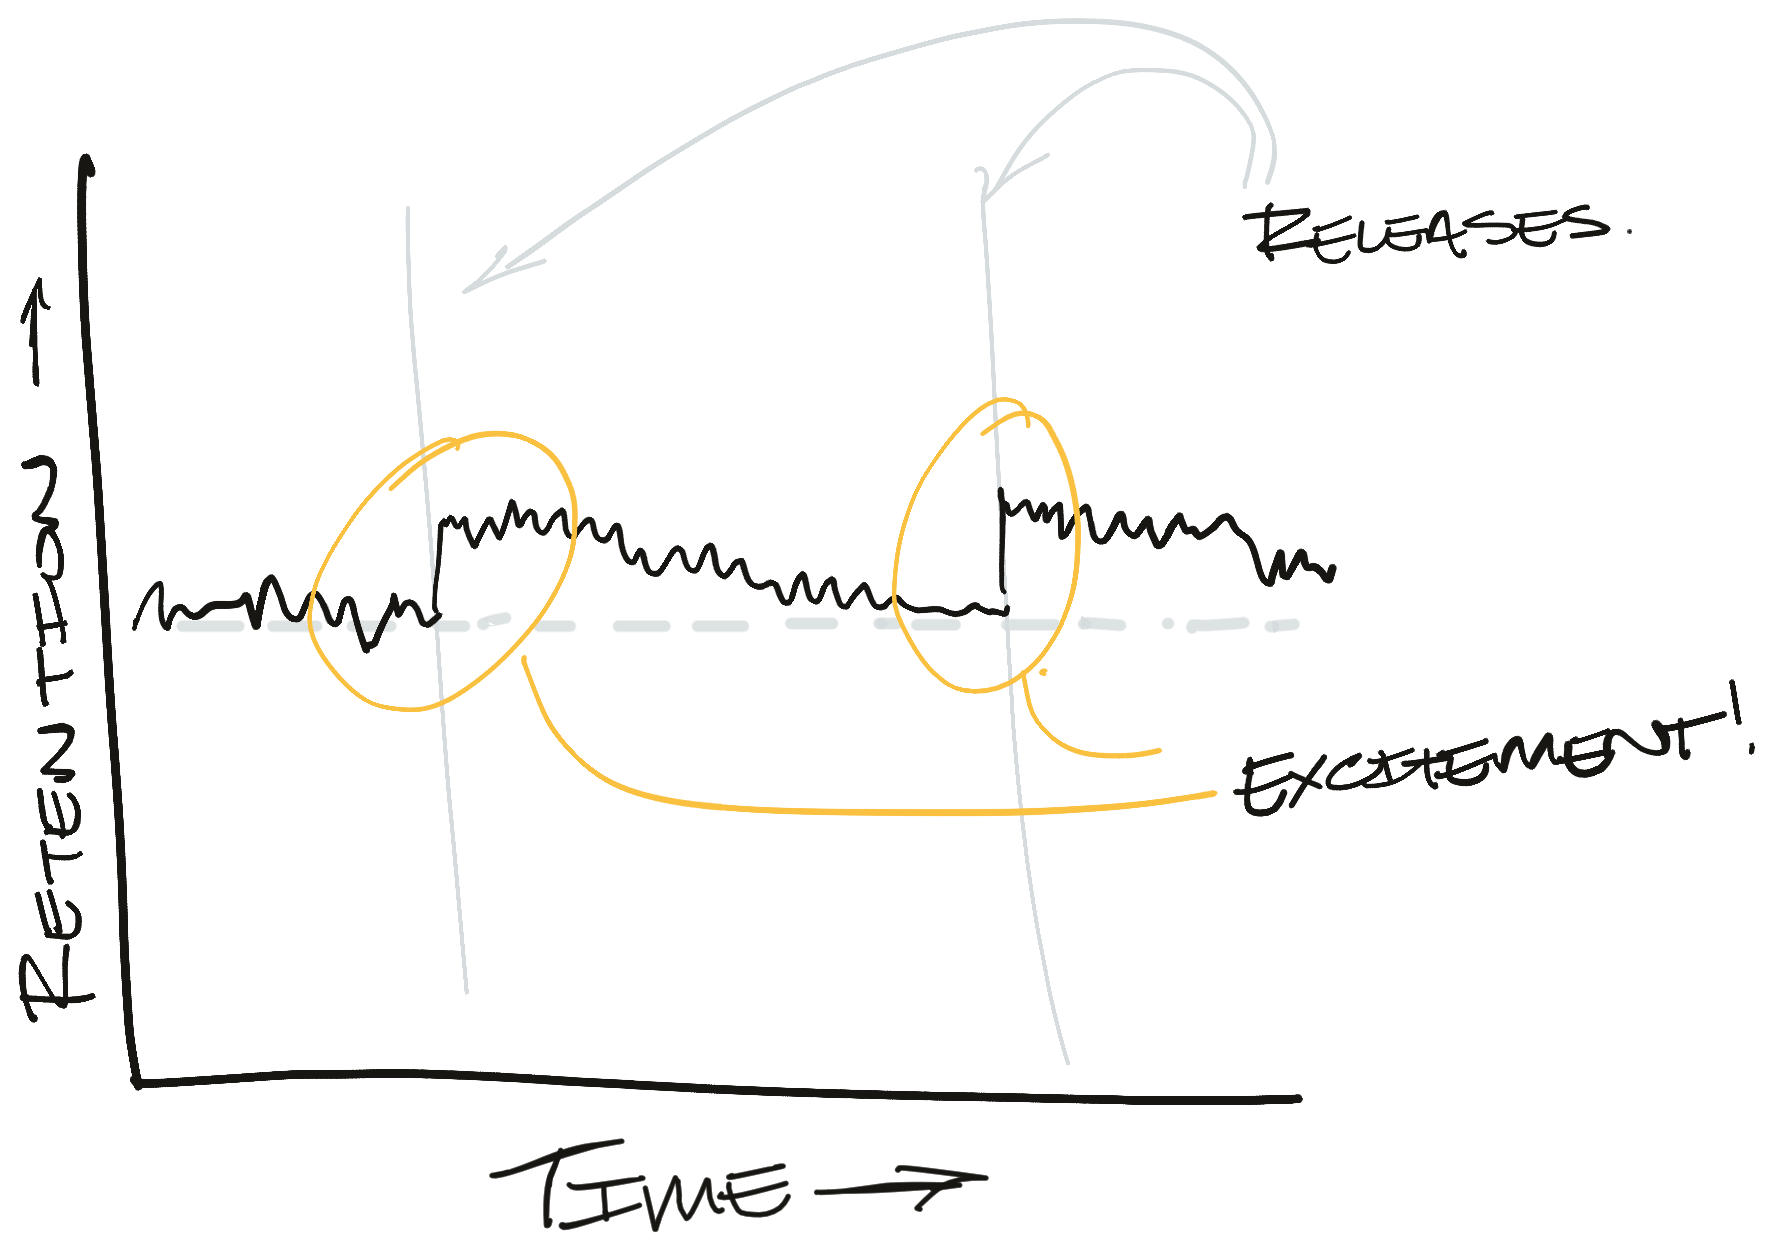 RELEASES.
RETENTION
EXCITEMENT!
TIME